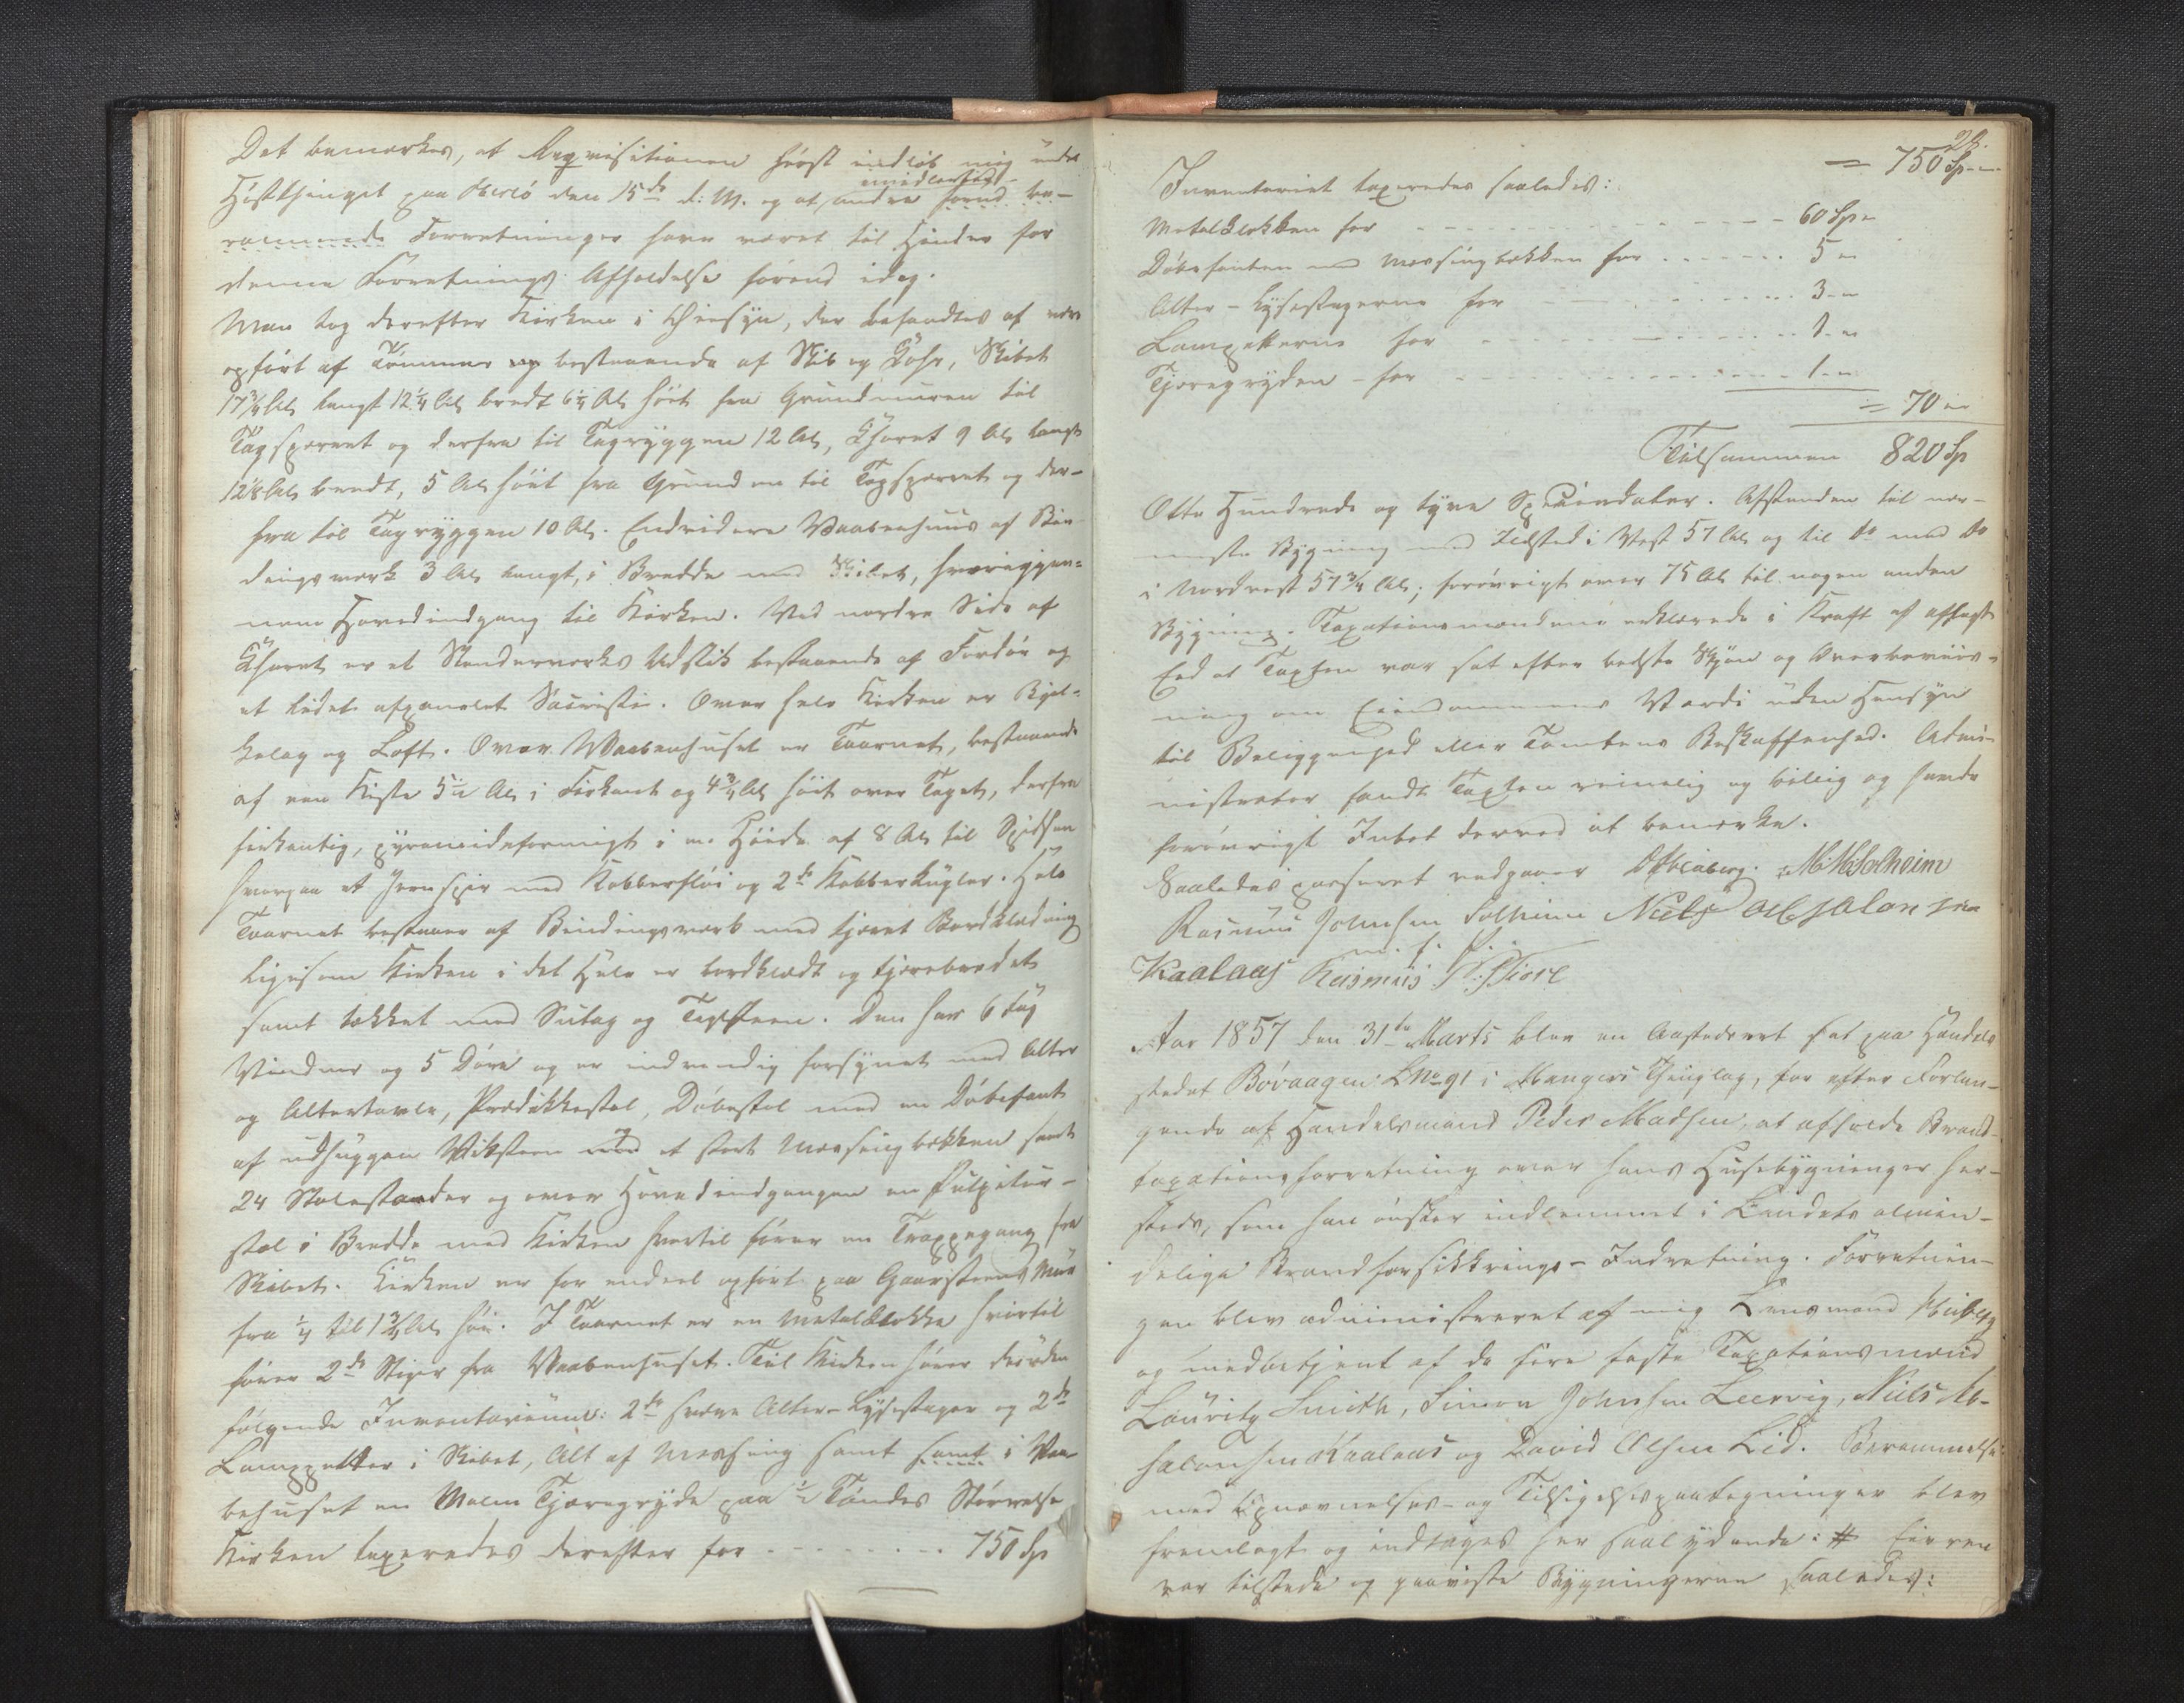 Det bemærkes, at Requisitionen først indløb mig under
Høstthinget paa Herlö den 15de d: M. og at imidlertid andre forud be-
rammede Forretninger have været til Hinder for
denne Forretnings Afholdelse førend idag.
Man tog derefter Kirken i Øiesyn, der befandtes at være
opført af Tømmer og bestaaende af Skib og Chor, Skibet
17 3/4 Al. langt 12 1/4 Al. bredt 6 1/4 Al. høit fra Grundmuren til
Tagsperret og derfra til Tagryggen 12 Al., Choret 9 Al. langt
12 1/8 Al. bredt, 5 Al. høit fra Grunden til Tagsperret og der-
fra til Tagryggen 10 Al. Endvidere Vaabenhuus af Bin-
dingsværk 3 Al. langt, i Bredde med Skibet, hvorigjen-
nem Hovedindgang til Kirken. Ved nordre Side af
Choret er et Stenderværks Udstik bestaaende af Fordør og
et lidet afpanelet Sacristi. Over hele Kirken er Bjel-
kelag og Loft. Over Vaabenhuset er Taarnet, bestaaende
af een Kiste 5 1/2 Al. i Firkant og 4 3/4 Al. høit over Taget, derfra
firkantig, pyramideformigt i en Høide af 8 Al. til Spidsen
hvorpaa et Jernspir med Kobberfløi og 2de Kobberkugler. Hele
Taarnet bestaaer af Bindingsværk med tjæret Bordklædning
ligesom Kirken i det Hele er bordklædt og tjærebredet
samt tækket med Sutag og Tagsteen. Den har 6 Fag
Vinduer og 5 Døre og er indvendig forsynet med Alter
og Altertavle, Prædikkestol, Døbestol med en Døbefont
af udhuggen Viksteen med et stort Messingbækken samt
24 Stolestader og over Hovedindgangen en Pulpitur-
stol i Bredde med Kirken hvortil fører en Trappegang fra
Skibet. Kirken er for endeel opført paa Graasteens Muur
fra 1/4 til 1 3/4 Al. høi. I Taarnet er en Metalklokke hvortil
fører 2de Stiger fra Vaabenhuset. Til Kirken hører desuden
følgende Inventarium: 2de svære Alter-Lysestager og 2de
Lampetter i Skibet, Alt af Messing samt samt i Vaa-
behuset en Malm Tjæregryde paa 1/2 Tøndes Størrelse
Kirken taxeredes derefter for - - - - - - - - 750 Sp
28.
= 750 Sp. -
Inventariet taxeredes saaledes:
Metalklokken for - - - - - - - - - - - 60 Sp. -
Døbefonten med Messingbækken for - - - - - - - 5 -
Alter-Lysestagerne for - - - - - - - - - 3 -
Lampetterne for - - - - - - - - - - 1 -
Tjæregryden - for - - - - - - - - - - 1 -
= 70 -
Tilsammen 820 Sp
Otte Hundrede og tyve Speciedaler. Afstanden til nær-
meste Bygning med Ildsted i Vest 57 Al. og til do med do
i Nordvest 57 3/4 Al.; forøvrigt over 75 Al. til nogen anden
Bygning. Taxationsmændene erklærede i Kraft af aflagt
Eed at Taxten var sat efter bedste Skjøn og Overbeviis-
ning om Eiendommens Værdi uden Hensyn
til Beliggenhed eller Tomtens Beskaffenhed. Admi-
nistrator fandt Taxten rimelig og billig og havde
forøvrigt Intet derved at bemærke.
Saaledes passeret vedgaaer M: Solheim
Rasmus Johnsen Solheim Niels Absalonsen
m. f. P.
Kaalaas Rasmus
Aar 1857 den 31te Marts blev en Aastedsret sat paa Handels
stedet Bøvaagen LNo 91 i Mangers Thinglag, for efter Forlan-
gende af Handelsmand Peder Madsen, at afholde Brand-
taxationsforretning over hans Husebygninger her-
steds, som han ønsker indlemmet i Landets almin-
delige Brandforsikkrings-Indretning. Forretnin-
gen blev administreret af mig Lensmand
og medbetjent af de fire faste Taxationsmænd
Lauritz Smith, Simon Johnsen Leervig, Niels Ab-
salonsen Kaalaas og David Olsen Lid. Berammelse
med Opnævnelses- og Tilsigelsespaategninger blev
fremlagt og indtages her saalydende: # Eieren
var tilstede og paaviste Bygningerne saaledes: